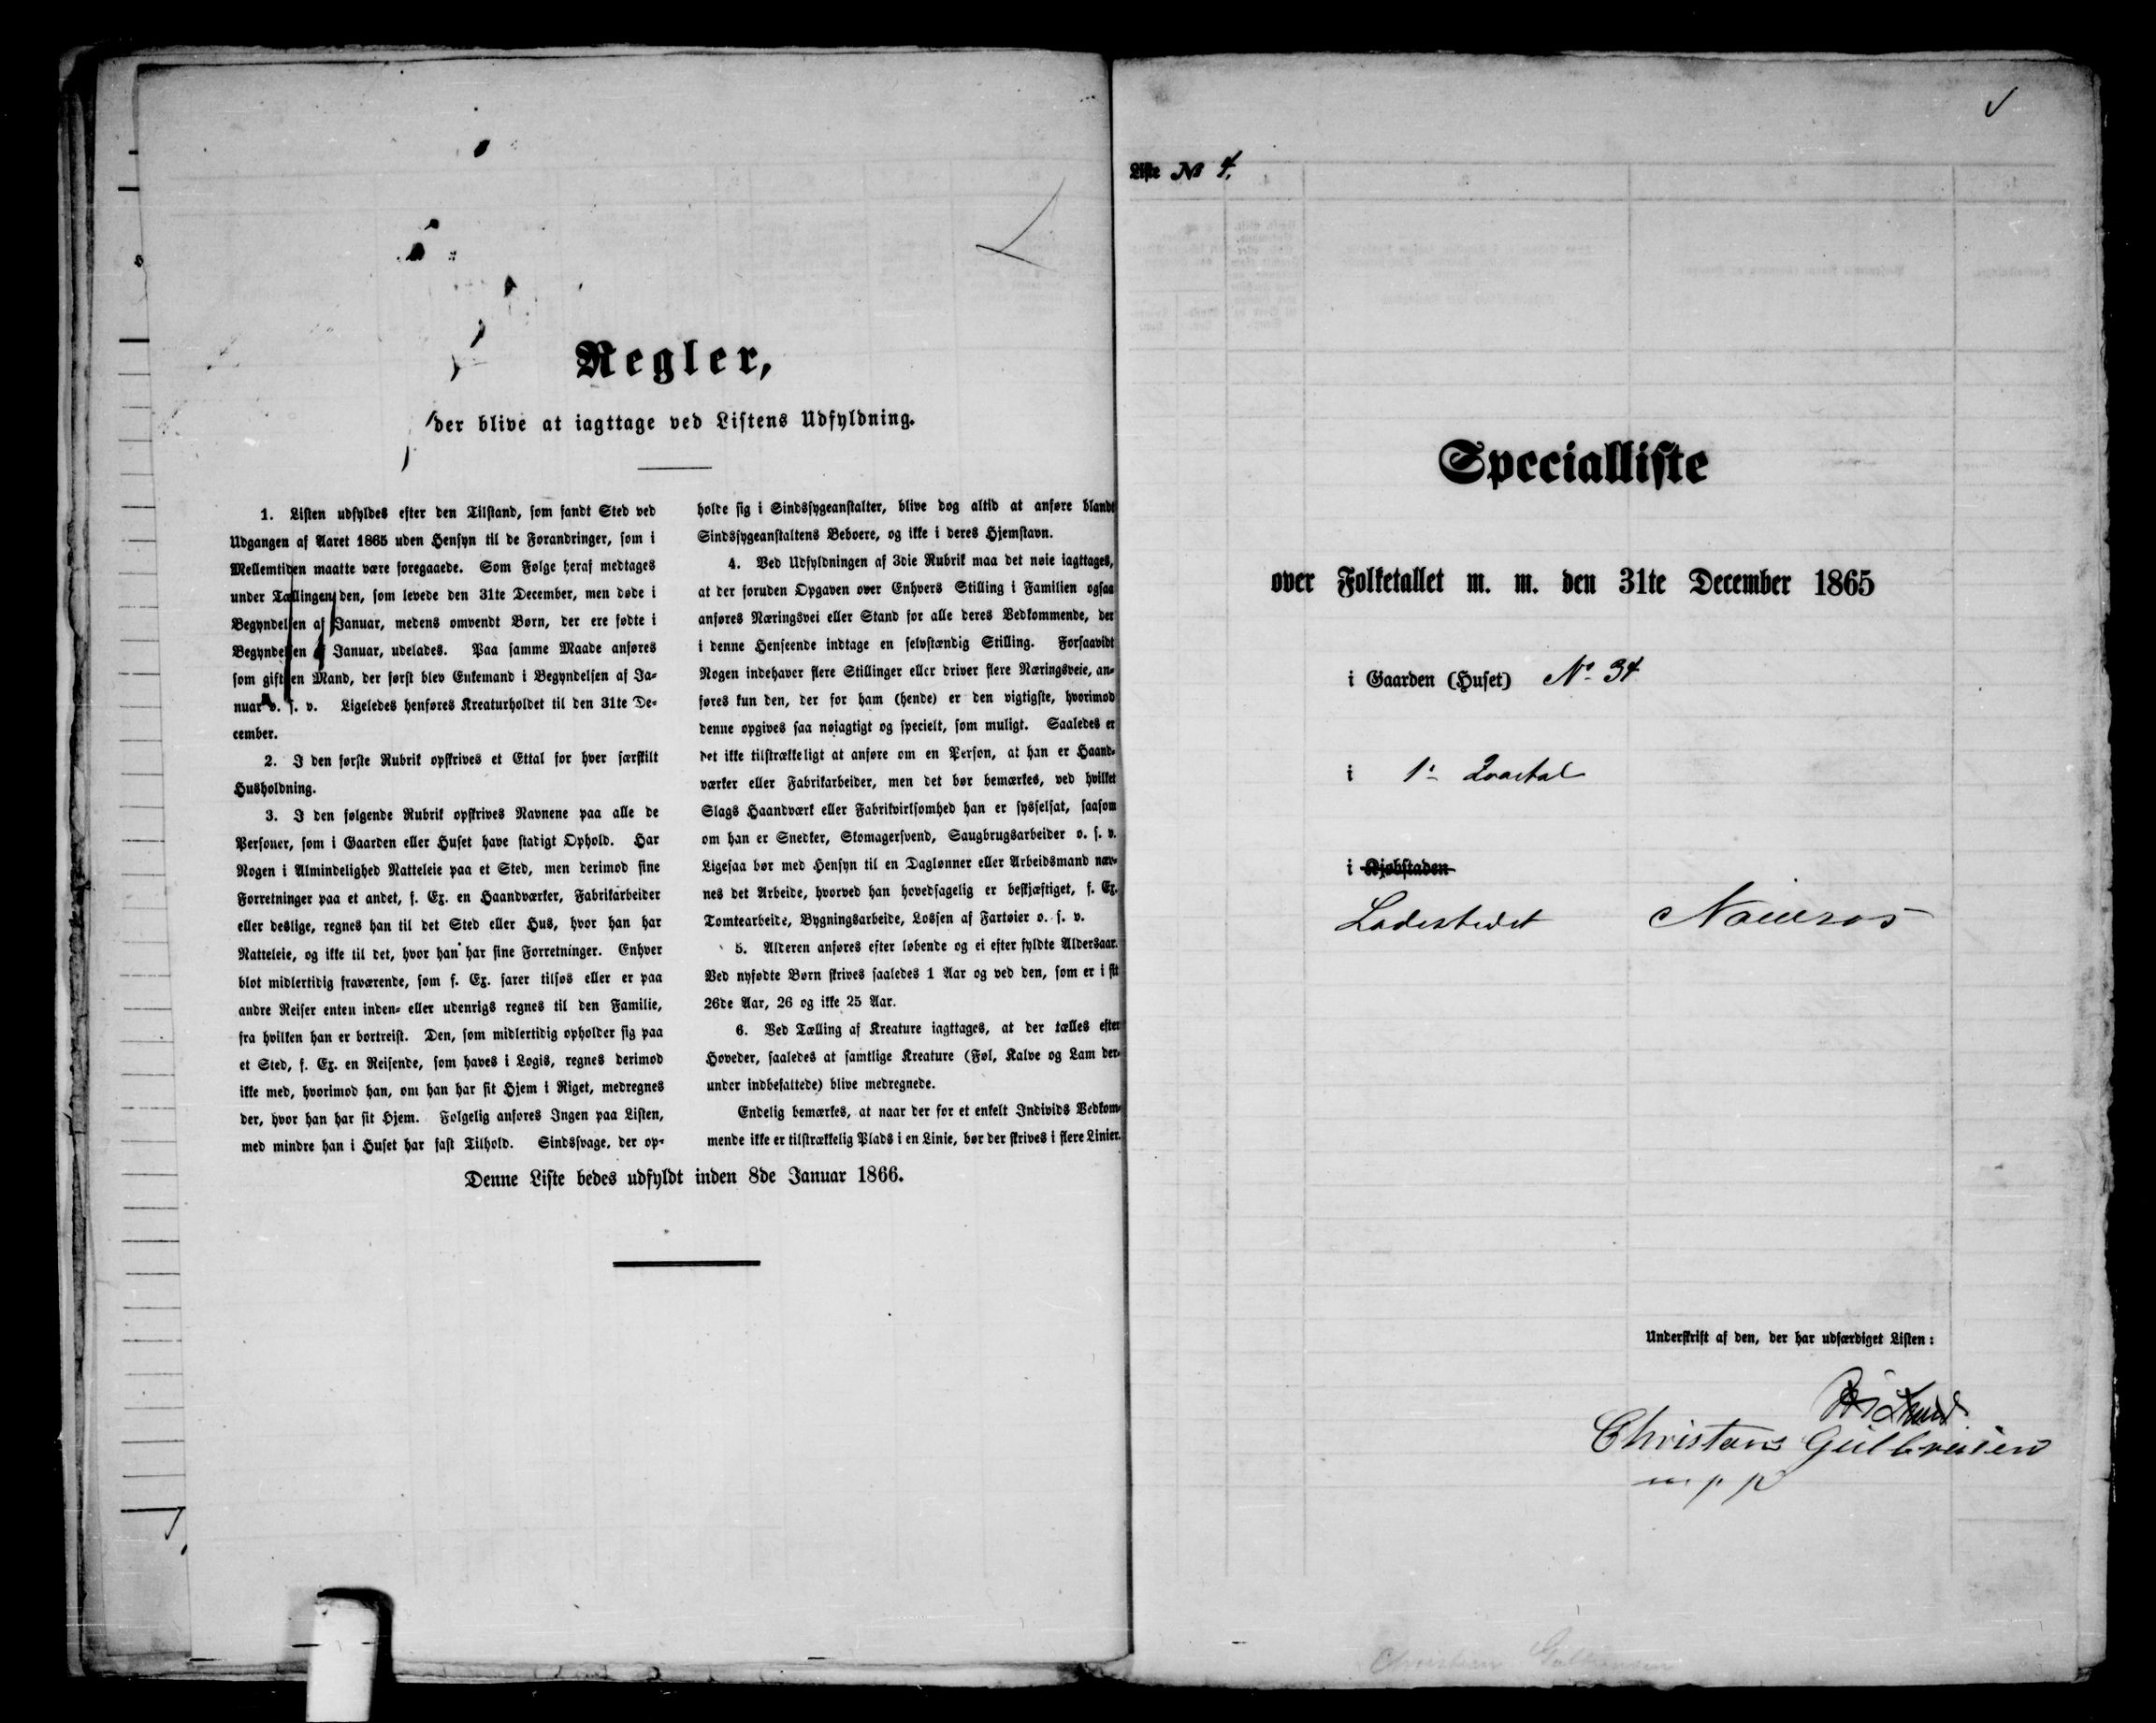 Regler,
der blive at iagttage ved Listens Udfyldning.
1. Listen udfyldes efter den Tilstand, som fandt Sted ved
Udgangen af Aaret 1865 uden Hensyn til de Forandringer, som i
Mellemtiden maatte være foregaaede. Som Følge heraf medtages
under Tællingen den, som levede den 31te December, men døde i
Begyndelsen af Januar, medens omvendt Børn, der ere fødte i
Begyndelsen af Januar, udelades. Paa samme Maade anføres
som gift en Mand, der først blev Enkemand i Begyndelsen af Ja-
nuar o. s. v. Ligeledes henføres Kreaturholdet til den 31te De-
cember.
2. I den første Rubrik opskrives et Ettal for hver særskilt
Husholdning.
3. I den følgende Rubrik opskrives Navnene paa alle de
Personer, som i Gaarden eller Huset have stadigt Ophold. Har
Nogen i Almindelighed Natteleie paa et Sted, men derimod sine
Forretninger paa et andet, f. Ex. en Haandværker, Fabrikarbeider
eller deslige, regnes han til det Sted eller Hus, hvor han har
Natteleie, og ikke til det, hvor han har sine Forretninger. Enhver
blot midlertidig fraværende, som f. Ex. farer tilsøs eller er paa
andre Reiser enten inden- eller udenrigs regnes til den Familie,
fra hvilken han er bortreist. Den, som midlertidig opholder sig paa
et Sted, f. Ex. en Reisende, som haves i Logis, regnes derimod
ikke med, hvorimod han, om han har sit Hjem i Riget, medregnes
der, hvor han har sit Hjem. Folgelig anføres Ingen paa Listen,
med mindre han i Huset har fast Tilhold. Sindssvage, der op-
holde sig i Sindssygeanstalter, blive dog altid at anføre blandt
Sindssygeanstaltens Beboere, og ikke i deres Hjemstavn.
4. Ved Udfyldningen af 3die Rubrik maa det nøie iagttages,
at der foruden Opgaven over Enhvers Stilling i Familien ogsaa
anføres Næringsvei eller Stand for alle deres Vedkommende, der
i denne Henseende indtage en selvstændig Stilling. Forsaavidt
Nogen indehaver flere Stillinger eller driver flere Næringsveie, an-
føres kun den, der for ham (hende) er den vigtigste, hvorimod
denne opgives saa nøiagtigt og specielt, som muligt. Saaledes er
det ikke tilstrækkeligt at anføre om en Person, at han er Haand-
værker eller Fabrikarbeider, men det bør bemærkes, ved hvilket
Slags Haandværk eller Fabrikvirksomhed han er sysselsat, saasom
om han er Snedker, Skomagersvend, Saugbrugsarbeider o. s. v.
Ligesaa bør med Hensyn til en Daglønner eller Arbeidsmand næv-
nes det Arbeide, hvorved han hovedsagelig er beskjæftiget, f. Ex.
Tomtearbeide, Bygningsarbeide, Lossen af Fartøier o. s. v.
5. Alderen anføres efter løbende og ei efter fyldte Aldersaar.
Ved nyfødte Børn skrives saaledes 1 Aar og ved den, som er i sit
26de Aar, 26 og ikke 25 Aar.
6. Ved Tælling af Kreature iagttages, at der tælles efter
Hoveder, saaledes at samtlige Kreature (Føl, Kalve og Lam der-
under indbefattede) blive medregnede.
Endelig bemærkes, at naar der for et enkelt Individs Vedkom-
mende ikke er tilstrækkelig Plads i en Linie, bør der skrives i flere Linier.
Denne Liste bedes udfyldt inden 8de Januar 1866.
Liste № 4.
Specialliste
over Folketallet m. m. den 31te December 1865
i Gaarden (Huset) No 34
i 1ste Qvartal
i Kjøbstaden
Ladestedet Namsos
Underskrift af den, der har udfærdiget Listen:
Christans Gulbransen
m. p. p